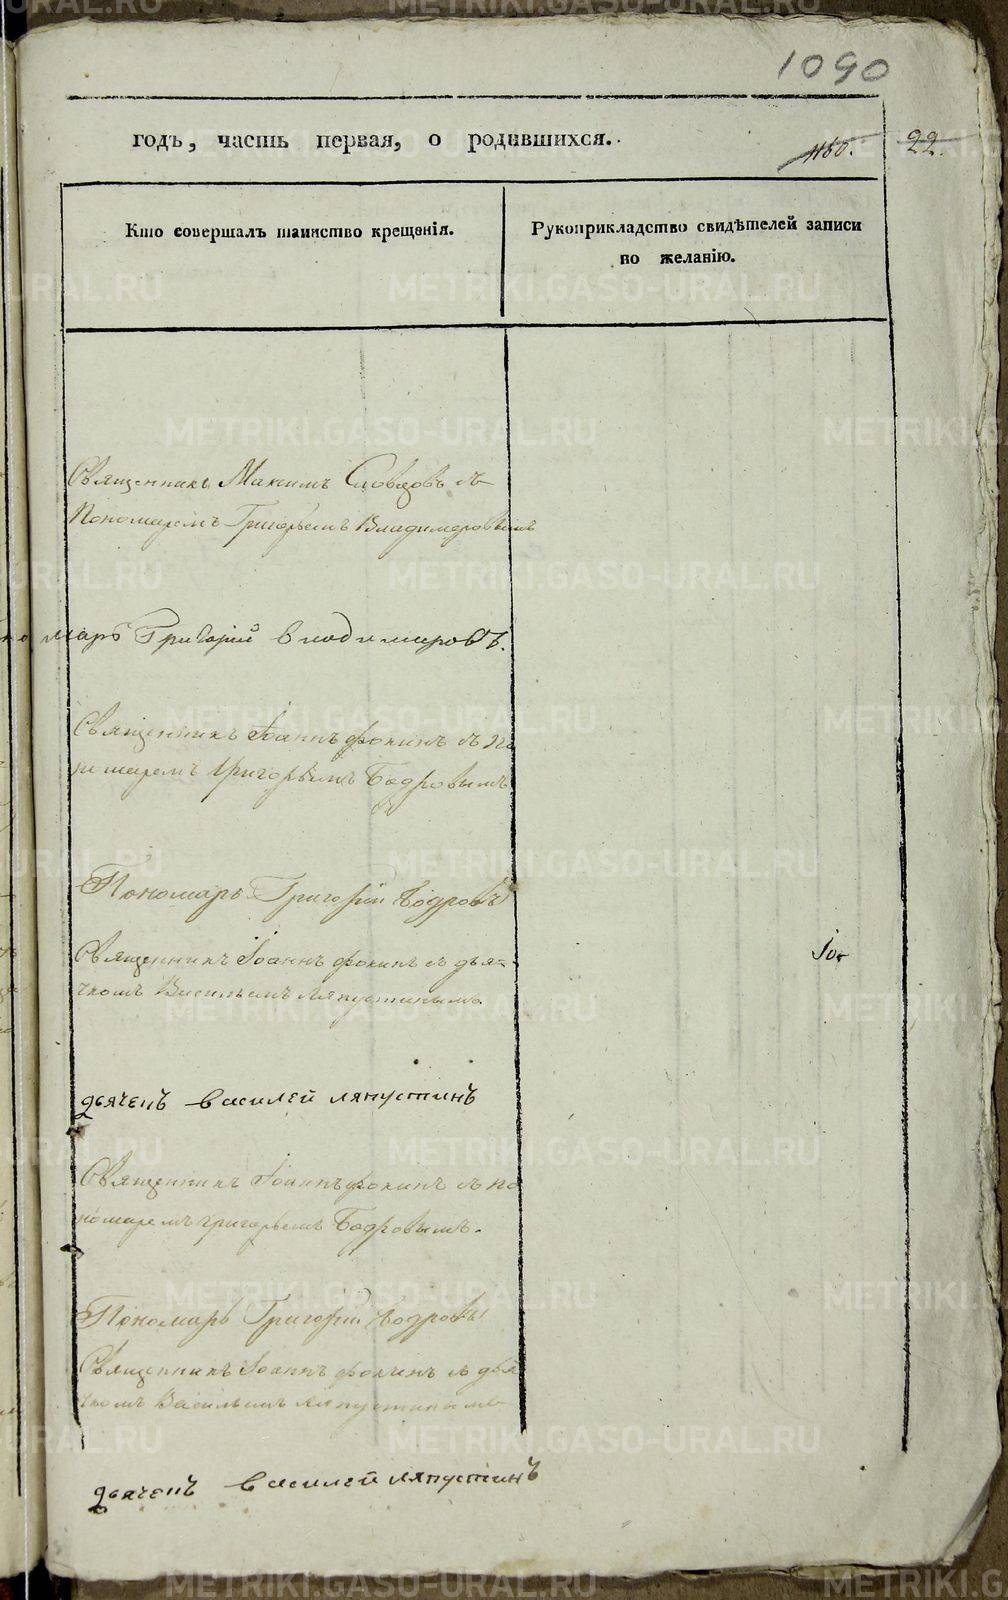 1090
годъ, часть первая, о родившихся.
450. 22.
Кто совершалъ таинство крещенія.
Рукоприкладство свидѣтелей записи
по желанію.
Священникъ Максимъ Словцовъ съ
Пономаремъ Григорьемъ Владимеровымъ
марь Григорий Владимеровъ.
Священникъ Іоаннъ Фокинъ съ по
номаремъ Григорьемъ Бодровымъ
Пономарь Григорій Бодровъ
Священникъ Іоаннъ Фокинъ съ дья-
чкомъ Васильемъ Ляпустинымъ.
дьячекъ василей ляпустинъ
Священникъ Іоаннъ Фокинъ съ по
номаремъ Григорьемъ Бодровымъ.
Пономарь Григорій Бодровъ
Священникъ Іоаннъ Фокинъ съ дья
чкомъ Васильемъ Ляпустинымъ
дьячекъ василей ляпустинъ
METRIKI.GASO-URAL.RU